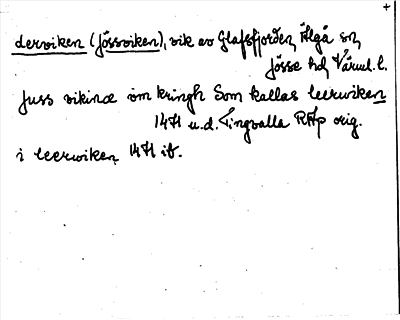 +
derviken (Jössviken), vik av Glafsfjorden, Älgå sn,
Jösse hd, Värml. l.
Juss vikinæ om kringh Som kallas leerwiken
1471 u.d. Tingvalla RAp orig.
i leerwiken 1471 ib.